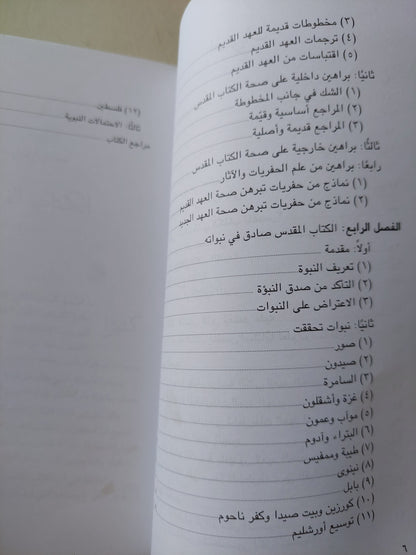 (٣) مخطوطات قديمة للعهد القديم
(٤) ترجمات العهد القديم
(٥) اقتباسات من العهد القديم
ثانيًا: براهين داخلية على صحة الكتاب المقدس
(١) الشك في جانب المخطوطة
(٢) المراجع أساسية وقيّمة
(٣) المراجع قديمة وأصلية
ثالثًا: براهين خارجية على صحة الكتاب المقدس
رابعًا: براهين من علم الحفريات والآثار
(١) نماذج من حفريات تبرهن صحة العهد القديم
(٢) نماذج من حفريات تبرهن صحة العهد الجديد
الفصل الرابع: الكتاب المقدس صادق في نبواته
أولاً: مقدمة
(١) تعريف النبوة
(٢) التأكد من صدق النبوّة
(٣) الاعتراض على النبوات
ثانيًا: نبوات تحققت
(١) صور
(٢) صيدون
(٣) السامرة
(٤) غزة وأشقلون
(٥) موآب وعمون
(٦) البتراء وأدوم
(٧) طيبة وممفيس
(٨) نينوى
(٩) بابل
(١٠) كورزين وبيت صيدا وكفر ناحوم
(١١) توسيع أورشليم
٦
(١٢) فلسطين
ثالثًا: الاحتمالات النبوية
مراجع الكتاب